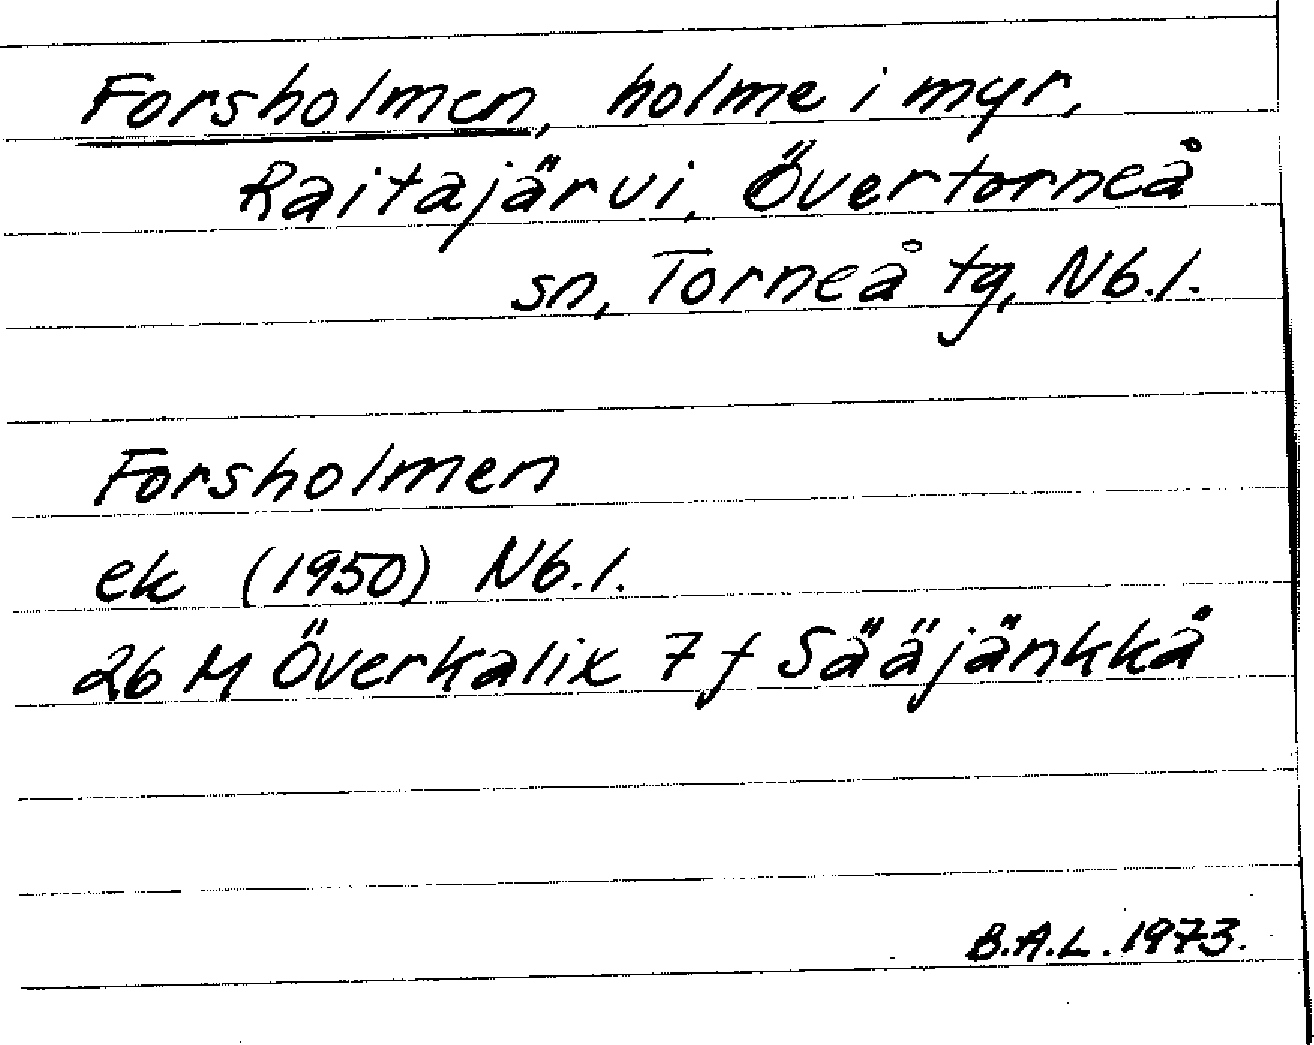 Forsholmen, holme i myr,
Raitajärvi, Övertorneå
sn, Torneå tg, Nb.l.
Forsholmen
ek (1950) Nb.l.
26 M Överkalix 7 f Sääjänkkå
B.A.L. 1973.